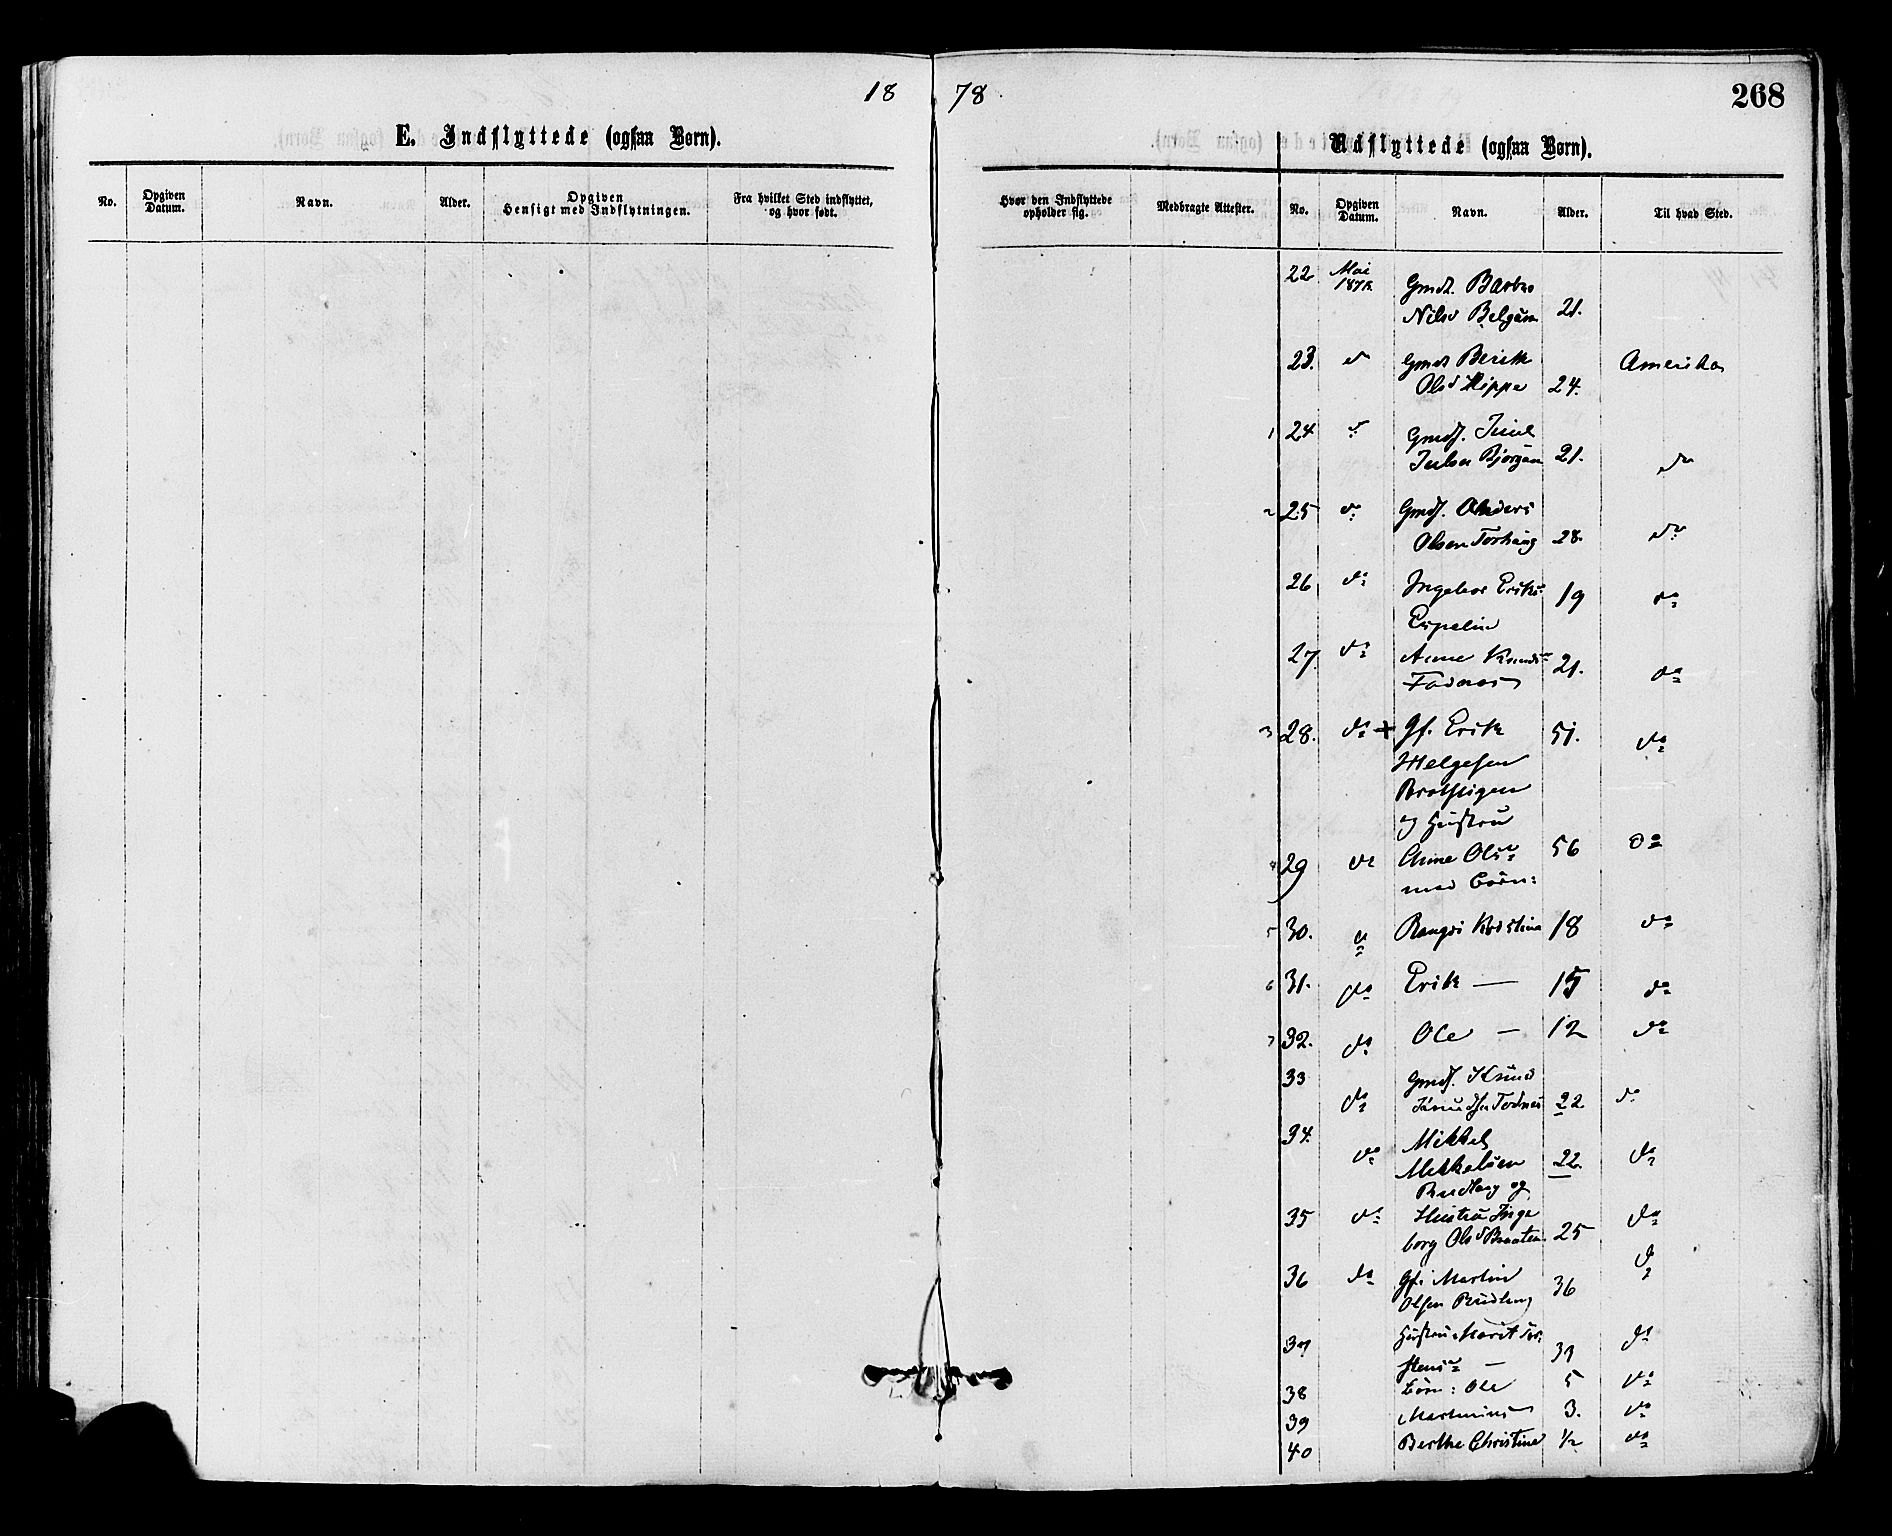 18 78
268
E. Indflyttede (ogsaa Børn).
Udflyttede (ogsaa Børn).
No. Opgiven Datum. Navn. Alder. Opgiven Hensigt med Indflytningen. Fra hvilket Sted indflyttet, og hvor født.
Hvor den Indflyttede opholder sig. Medbragte Attester. No. Opgiven Datum. Navn. Alder. Til hvad Sted.
22 Mai 1878 Gmdt. Barbro
Nilsd 21.
23. do Gmdt Berith Amerika
Olsd 24.
1 24 do Gmdf. Iver
Bjorgum 21. do
2 25 do Gmdf. Anders
Olsen 28. do
26 do Ingebor Eriks 19 do
Espelin
27 do Anne Knudsd 21. do
28. do + Gf. Erik 51. do
Helgesen
og Hustru
29 do Olsd 56 do
med Børn:
5 30. do Rangdi Kristina 18 do
6 31. do Erik — 15 do
7 32. do Ole — 12 do
33 do Gmdf. Knud
Knudsen 22. do
34. do Mikkel
Mikkelsen 22. do
Rudlang og
35 do Hustru Inge do
borg Olsd Braaten 25
36 do Gf. Martin 36 do
Olsen Rudlang
37 Hustru Marit Tor do
stensd —
38 Børn: Ole 5 do
39 Martinus 3. do
40 Berthe Christine ½ do